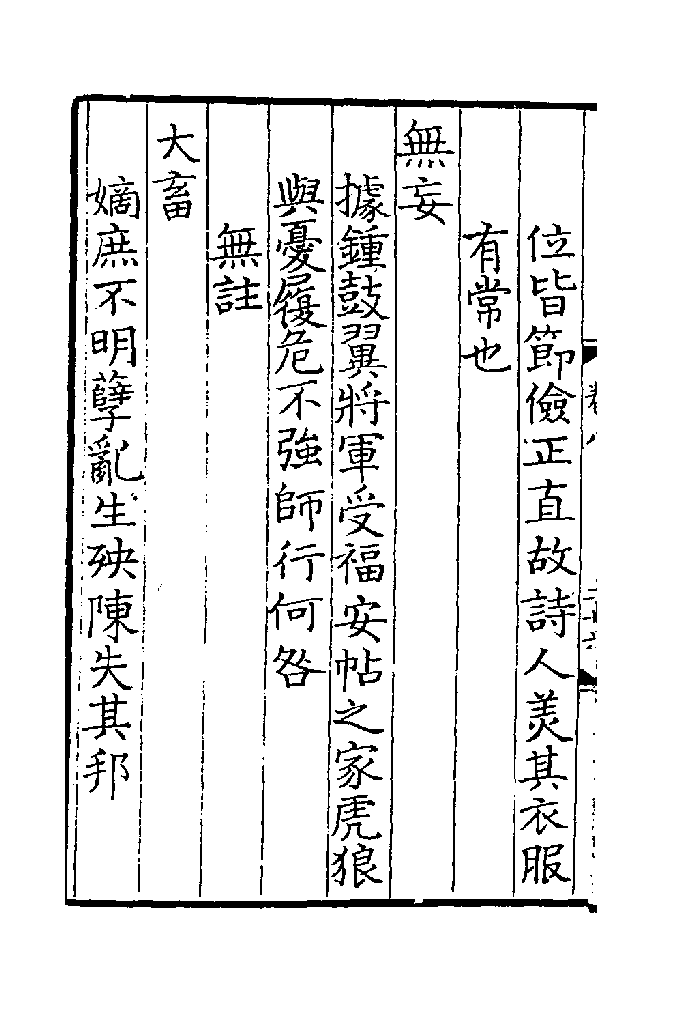 位皆節儉正直故詩人羙其衣服
有常也
無妄
據鍾鼓翼將軍受福安帖之家虎狼
與憂履危不強師行何咎
無註
大畜
嫡庶不明孽亂生殃陳失其邦